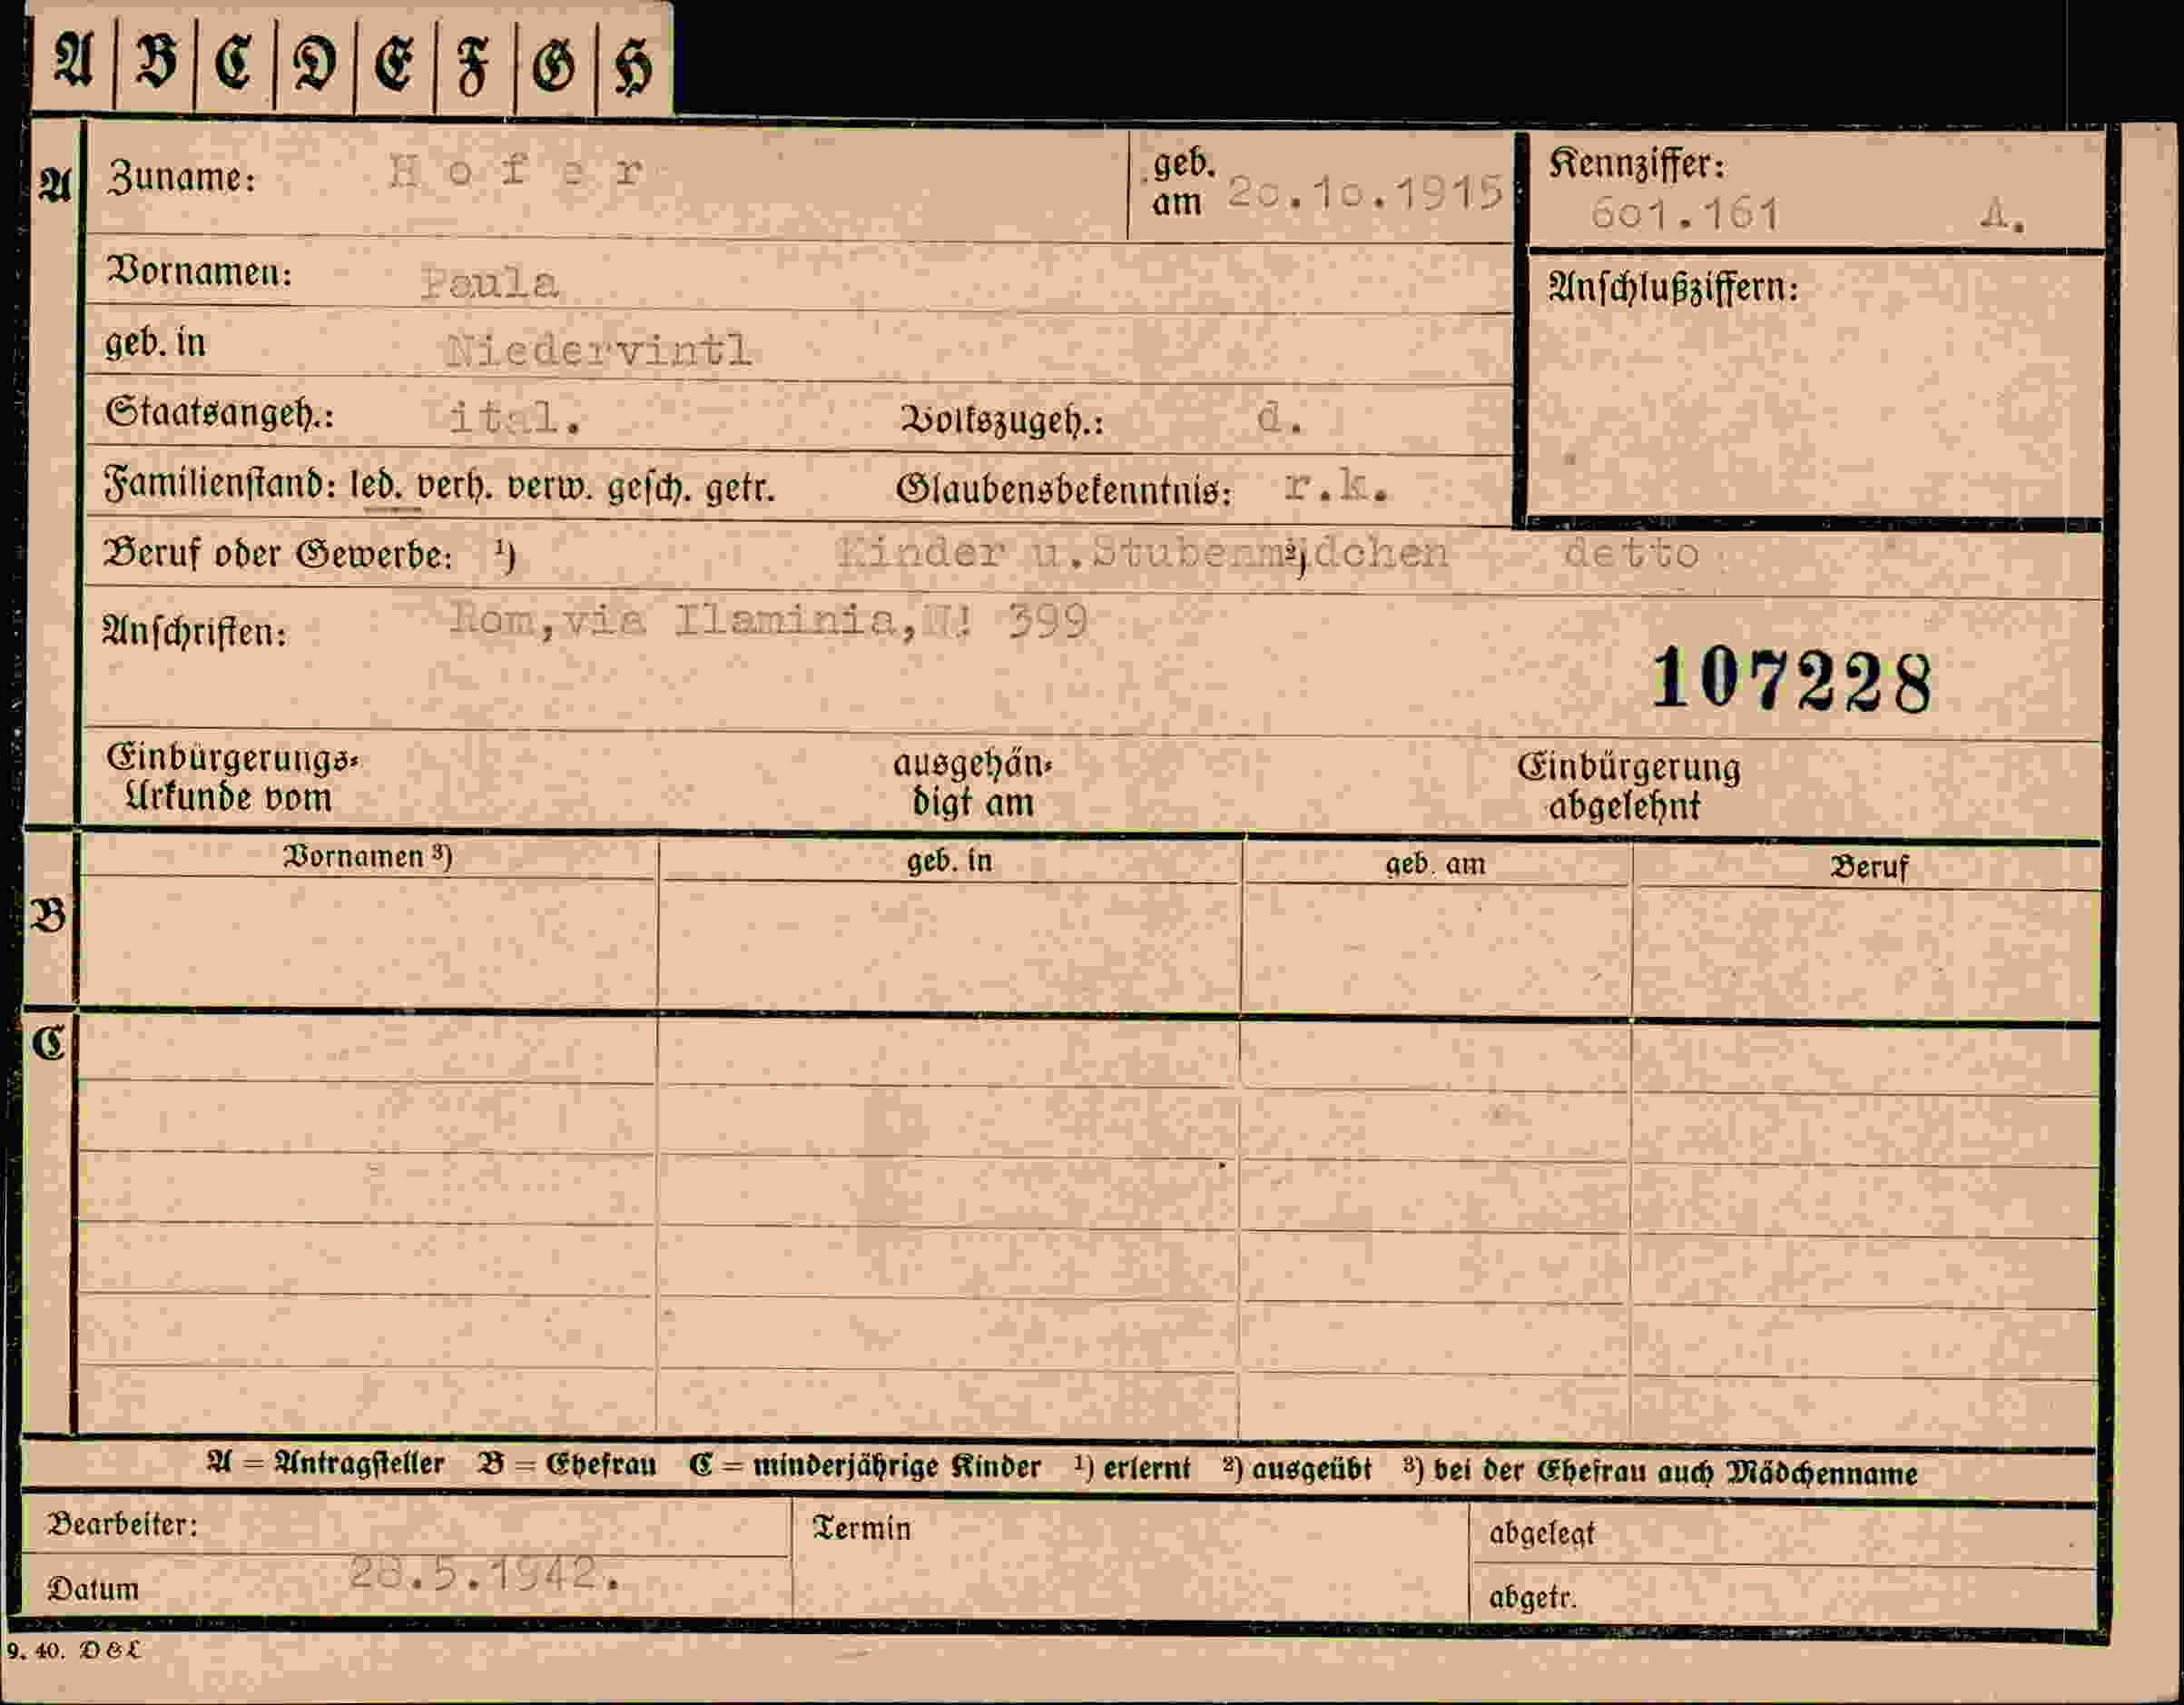 A B C D E F G H
A Zuname: Hofer geb. am 20.10.1915 Kennziffer: 601.161 A.
Vornamen: Paula Anschlußziffern:
geb. in Niedervintl
Staatsangeh.: ital. Volkszugeh.: d.
Familienstand: led. verh. verw. gesch. getr. Glaubensbekenntnis: r.k.
Beruf oder Gewerbe: ¹) Kinder u.Stubenmädchen ²) detto
Anschriften: Rom,via Ilaminia, 399
107228
Einbürgerungs- ausgehän- Einbürgerung
Urkunde vom digt am abgelehnt
Vornamen ³) geb. in geb. am Beruf
B
C
A = Antragsteller B = Ehefrau C = minderjährige Kinder ¹) erlernt ²) ausgeübt ³) bei der Ehefrau auch Mädchenname
Bearbeiter: Termin abgelegt
Datum 28.5.1942. abgetr.
9. 40. D & L